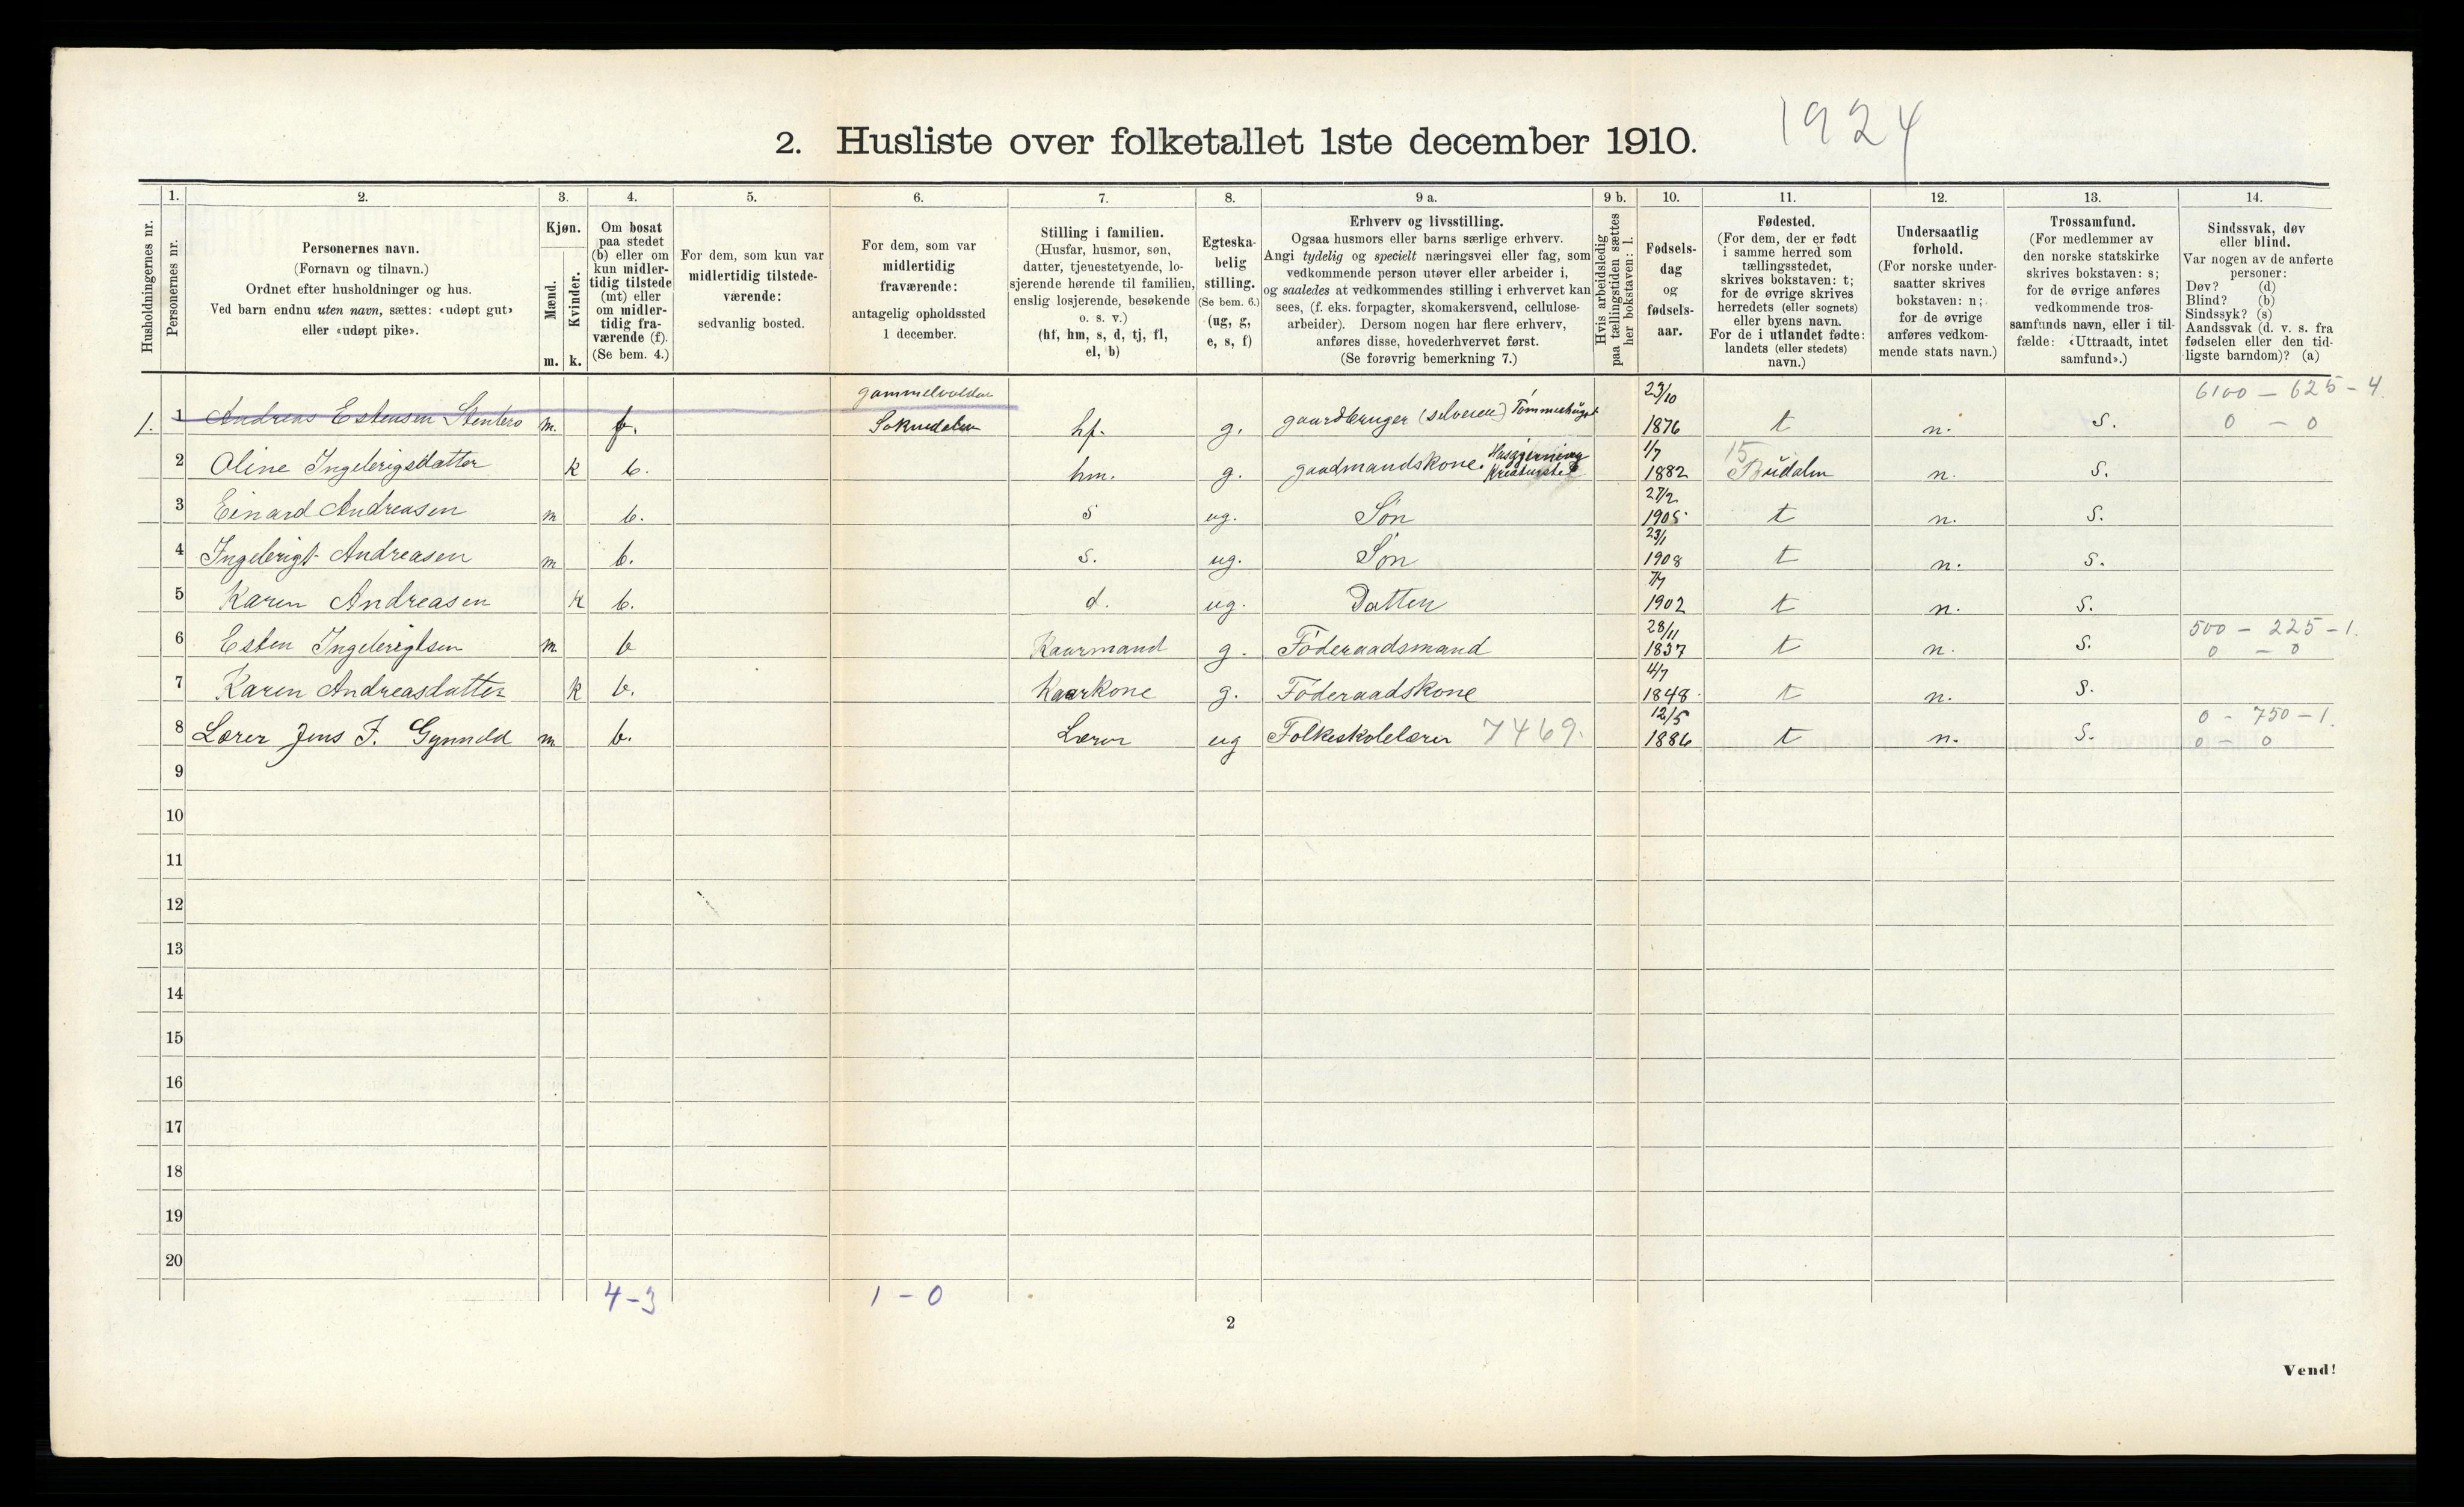 1924
2. Husliste over folketallet 1ste december 1910.
Husholdningernes nr.
1.
Personernes nr.
2.
Personernes navn.
(Fornavn og tilnavn.)
Ordnet efter husholdninger og hus.
Ved barn endnu uten navn, sættes: «udøpt gut»
eller «udøpt pike».
3.
Kjøn.
Mænd.
Kvinder.
m. k.
4.
Om bosat
paa stedet
(b) eller om
kun midler-
tidig tilstede
(mt) eller
om midler-
tidig fra-
værende (f).
(Se bem. 4.)
5.
For dem, som kun var
midlertidig tilstede-
værende:
sedvanlig bosted.
6.
For dem, som var
midlertidig
fraværende:
antagelig opholdssted
1 december.
7.
Stilling i familien.
(Husfar, husmor, søn,
datter, tjenestetyende, lo-
sjerende hørende til familien,
enslig losjerende, besøkende
o. s. v.)
(hf, hm, s, d, tj, fl,
el, b)
8.
Egteska-
belig
stilling.
(Se bem. 6.)
(ug, g,
e, s, f)
9 a.
Erhverv og livsstilling.
Ogsaa husmors eller barns særlige erhverv.
Angi tydelig og specielt næringsvei eller fag, som
vedkommende person utøver eller arbeider i,
og saaledes at vedkommendes stilling i erhvervet kan
sees, (f. eks. forpagter, skomakersvend, cellulose-
arbeider). Dersom nogen har flere erhverv,
anføres disse, hovederhvervet først.
(Se forøvrig bemerkning 7.)
9 b.
Hvis arbeidsledig
paa tællingstiden sættes
her bokstaven: l.
10.
Fødsels-
dag
og
fødsels-
aar.
11.
Fødested.
(For dem, der er født
i samme herred som
tællingsstedet,
skrives bokstaven: t;
for de øvrige skrives
herredets (eller sognets)
eller byens navn.
For de i utlandet fødte:
landets (eller stedets)
navn.)
12.
Undersaatlig
forhold.
(For norske under-
saatter skrives
bokstaven: n;
for de øvrige
anføres vedkom-
mende stats navn.)
13.
Trossamfund.
(For medlemmer av
den norske statskirke
skrives bokstaven: s;
for de øvrige anføres
vedkommende tros-
samfunds navn, eller i til-
fælde: «Uttraadt, intet
samfund».)
14.
Sindssvak, døv
eller blind.
Var nogen av de anførte
personer:
Døv? (d)
Blind? (b)
Sindssyk? (s)
Aandssvak (d. v. s. fra
fødselen eller den tid-
ligste barndom)? (a)
gammelvolden 23/10 6100 - 625 - 4.
1. 1 Andreas Estensen Stenbro m. f. Soknedalen hf. g. gaardbruger (selveier) 1876 t n. s. 0 - 0
1/7 15
2 Oline Ingebrigsdatter k b. hm. g. gaadmandskone. Husgjerning 1882 Budalen n. s.
27/2
3 Einard Andreasen m b. s ug. Søn 1905 t n. s.
23/1
4 Ingebrigt Andreasen m b. s. ug. Søn 1908 t n. s.
5 Karen Andreasen k b. d. ug. Datter 1902 t n. s.
28/11 500 - 225 - 1.
6 Esten Ingebrigtsen m. b Kaarmand g. Føderaadsmand 1837 t n. s. 0 - 0
4/7
7 Karen Andreasdatter k b. Kaarkone g. Føderaadskone 1848 t n. s.
12/5 0 - 750 - 1.
8 Lærer Jens F. Gynneld m b. Lærer ug Folkeskolelærer 7469. 1886 t n. s. 0 - 0
9
10
11
12
13
14
15
16
17
18
19
20
4-3 1-0
2
Vend!